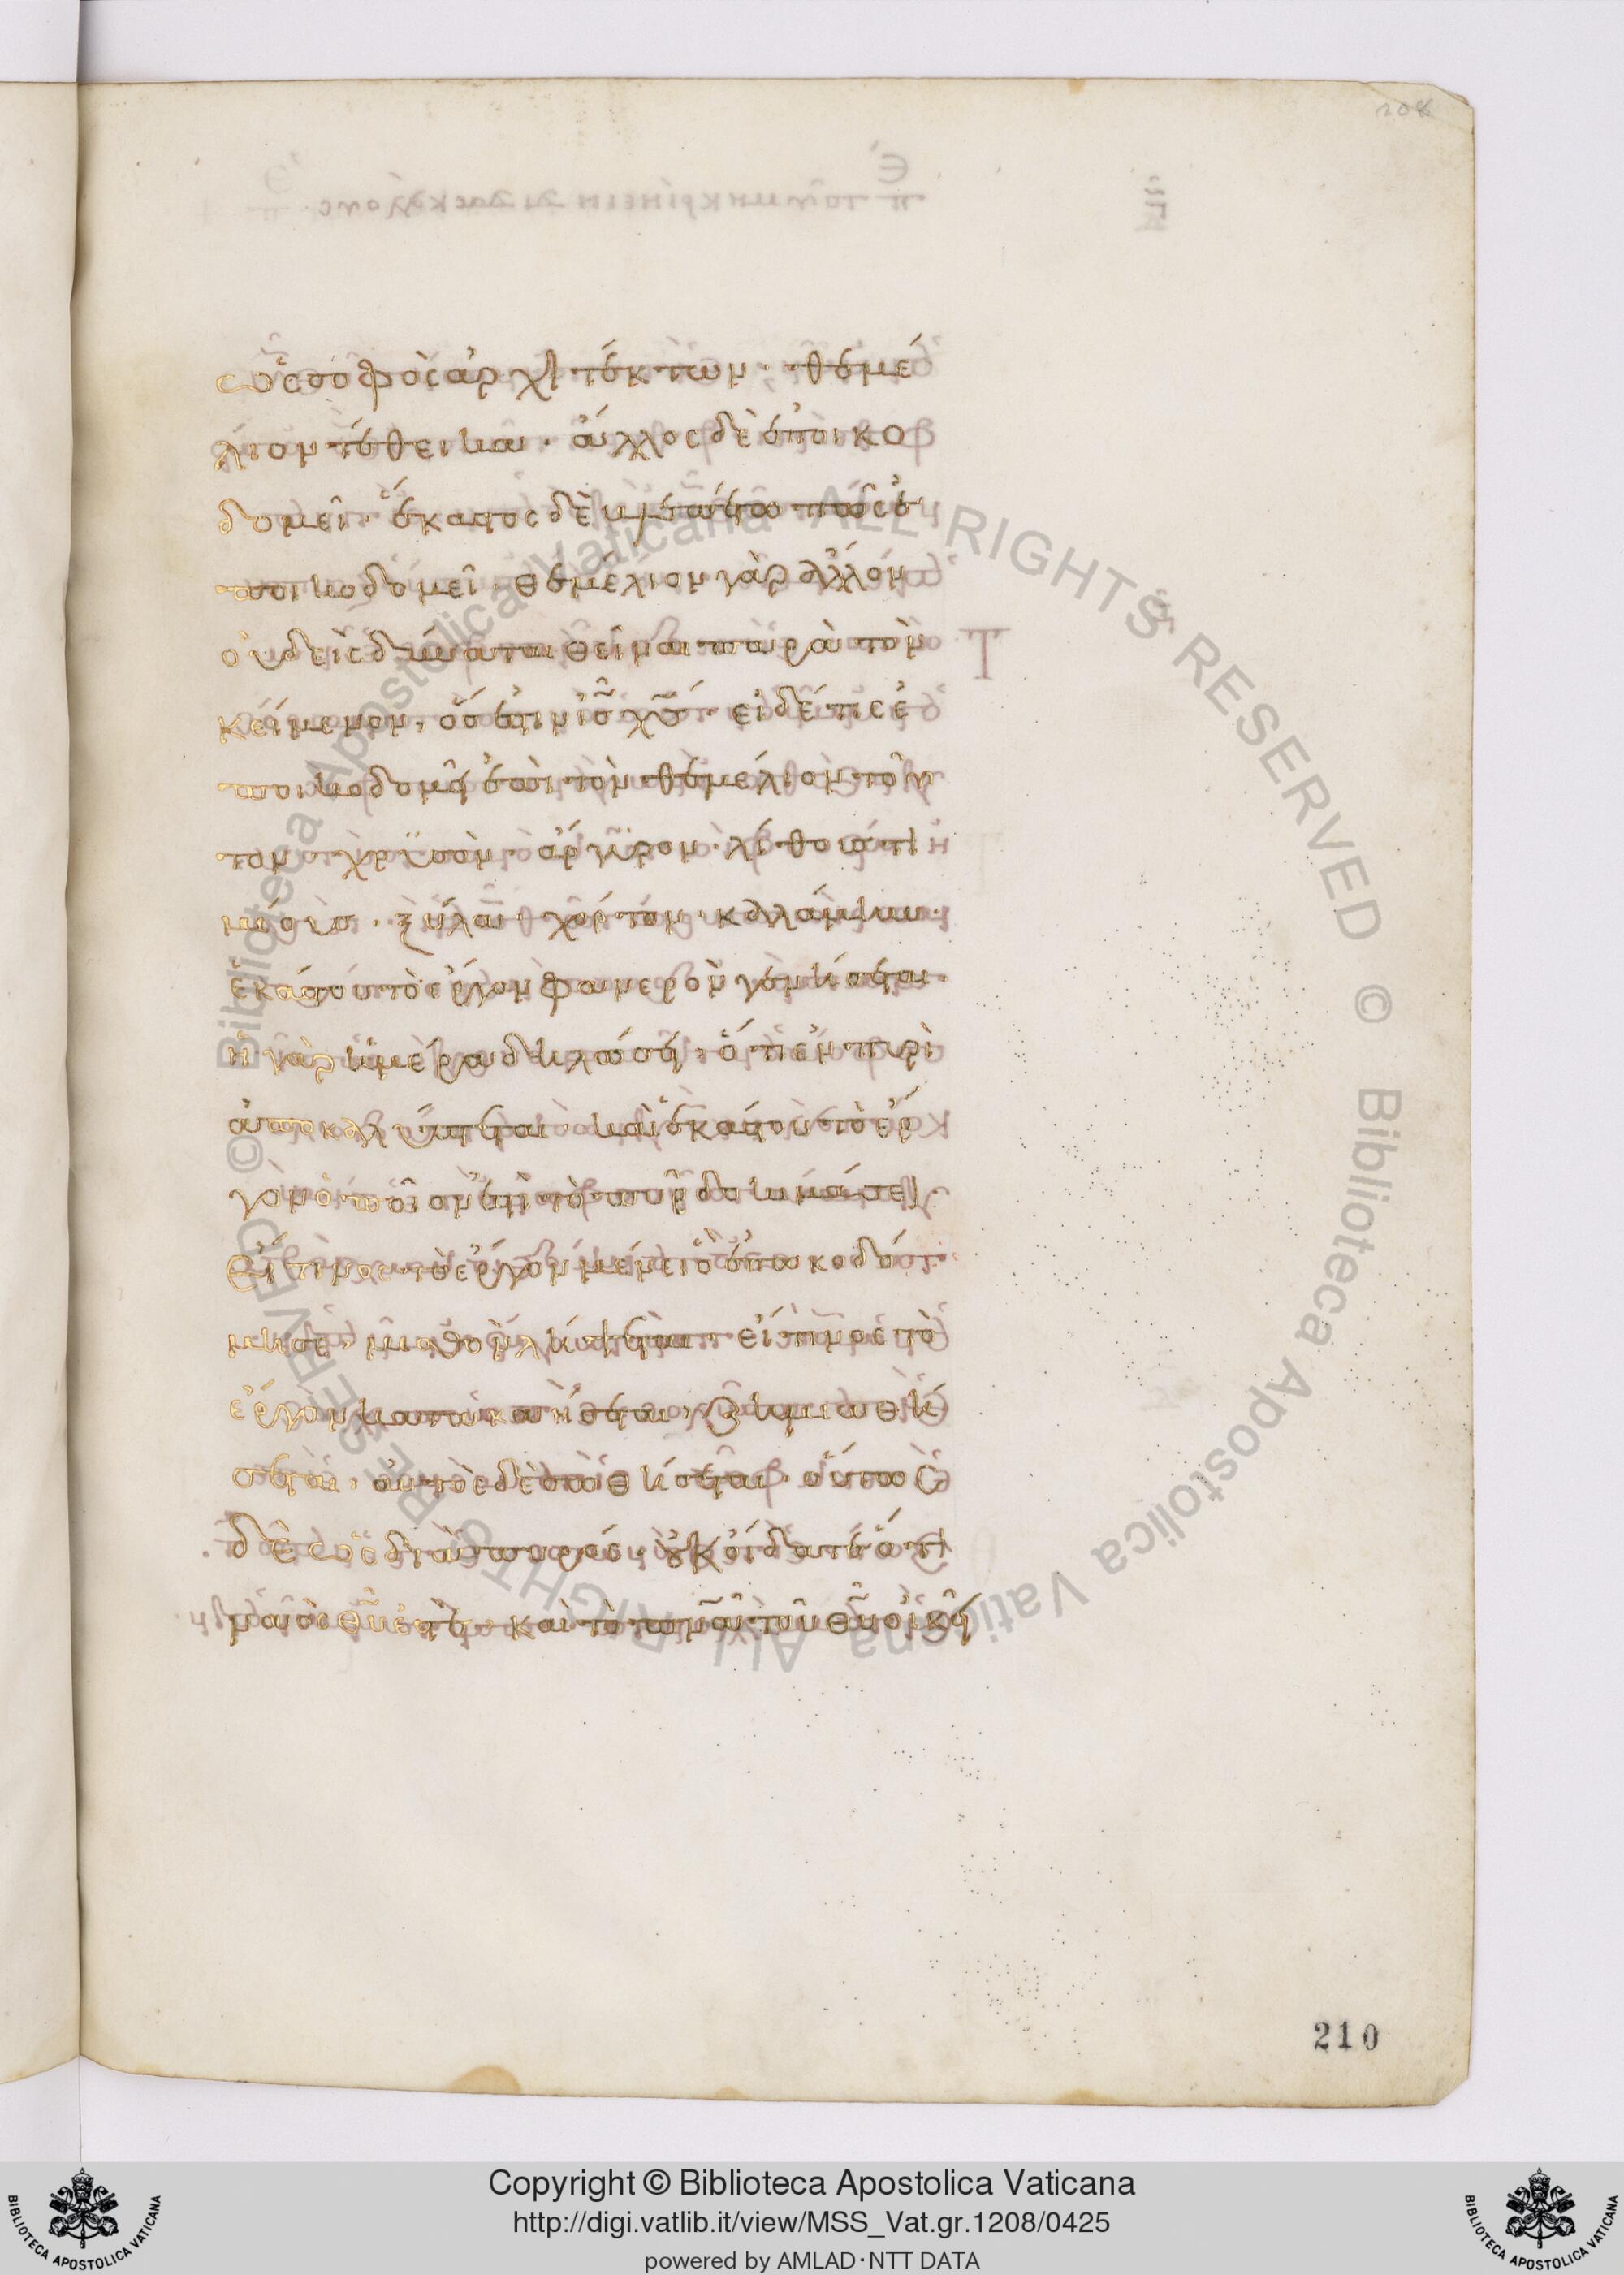 208
ὡς σοφὸς ἀρχιτέκτων· θεμέ
λιον τέθεικα· ἄλλος δὲ ἐποικο
δομεῖ· ἕκαστος δὲ βλεπέτω πῶς ἐ
ποικοδομεῖ· θεμέλιον γὰρ ἄλλον
οὐδεὶς δύναται θεῖναι παρὰ τὸν
κείμενον, ὅς ἐστιν ι̅ς̅ χ̅ς̅· εἰ δέ τις ἐ
ποικοδομῇ ἐπὶ τὸν θεμέλιον τοῦ
τον χρυσὸν· ἄργυρον· λίθους τι
μίους· ξύλα· χόρτον· καλάμην·
ἑκάστου τὸ ἔργον φανερὸν γενήσεται·
ἡ γὰρ ἡμέρα δηλώσει, ὅτι ἐν πυρὶ
ἀποκαλύπτεται· καὶ ἑκάστου τὸ ἔρ
γον ὁποῖόν ἐστι τὸ πῦρ δοκιμάσει·
Εἴ τινος τὸ ἔργον μένει ὃ ἐπωκοδό
μησε, μισθὸν λήψεται· εἴ τινος τὸ
ἔργον κατακαήσεται, ζημιωθή
σεται, αὐτὸς δὲ σωθήσεται· οὕτως
δὲ ὡς διὰ πυρός· οὐκ οἴδατε ὅτι
ναὸς θ̅υ̅ ἐστε· καὶ τὸ π̅ν̅α̅ τοῦ θ̅υ̅ οἰκεῖ
210
Biblioteca Apostolica Vaticana ALL RIGHTS RESERVED ©
Biblioteca Apostolica Vaticana ALL RIGHTS RESERVED ©
Copyright © Biblioteca Apostolica Vaticana
http://digi.vatlib.it/view/MSS_Vat.gr.1208/0425
powered by AMLAD·NTT DATA
BIBLIOTECA APOSTOLICA VATICANA
BIBLIOTECA APOSTOLICA VATICANA